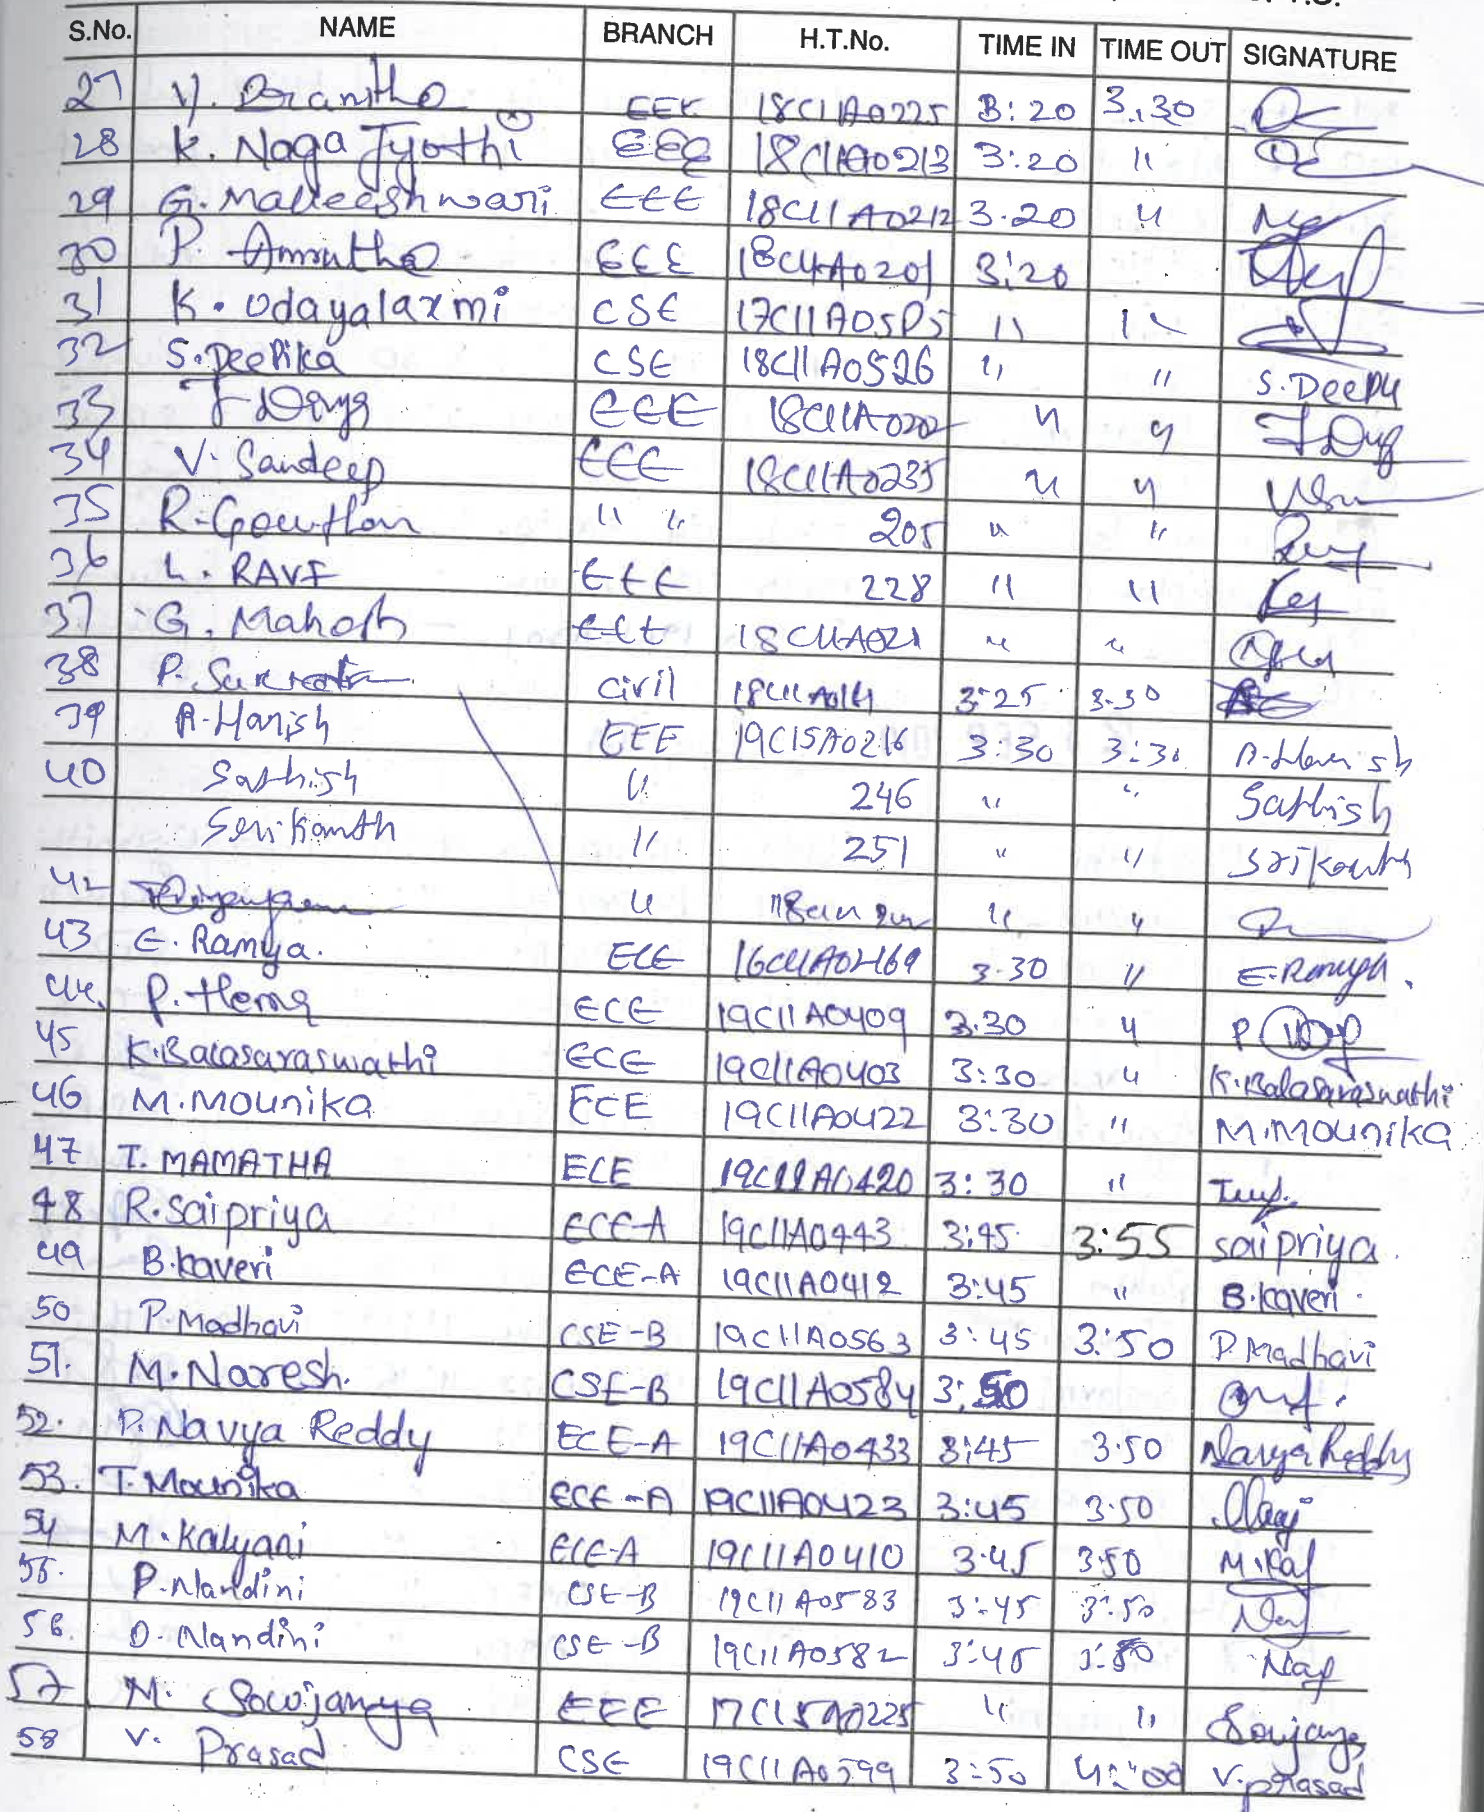 S.No. NAME BRANCH H.T.No. TIME IN TIME OUT SIGNATURE
27 V. Pranitha EEE 18C11A0225 3:20 3.30
28 K. Naga Jyothi EEE 18C11A0213 3:20 "
29 G. Malleeshwari EEE 18C11A0212 3.20 "
30 P. Amrutha EEE 18C11A0201 3:20
31 K. Udayalaxmi CSE 17C11A05P5 " "
32 S. Deepika CSE 18C11A0526 " " S. Deepu
33 J Divya EEE 18C11A0202 " "
34 V. Sandeep EEE 18C11A0235 " "
35 R. Gowtham " " 205 " "
36 L. RAVI EEE 228 " "
37 G. Mahesh EEE 18C11A021 " "
38 P. Civil 18C11A0114 3:25 3-30
39 A. Harish EEE 19C15A0216 3:30 3:30 A. Harish
40 Sathish " 246 " " Sathish
Srikanth " 251 " " Srikanth
42 " " "
43 E. Ramya. ECE 16C11A0469 3-30 " E. Ramya.
44. P. Hema ECE 19C11A0409 3.30 " P
45 K. Balasaraswathi ECE 19C11A0403 3:30 " K. Balasaraswathi
46 M. Mounika ECE 19C11A0422 3:30 " M. Mounika
47 T. MAMATHA ECE 19C11A0420 3:30 "
48 R. Saipriya ECE-A 19C11A0443 3:45 3:55 saipriya.
49 B. kaveri ECE-A 19C11A0412 3:45 " B. kaveri.
50 P. Madhavi CSE-B 19C11A0563 3:45 3:50 P. Madhavi
51. M. Naresh. CSE-B 19C11A0584 3:50
52. P. Navya Reddy ECE-A 19C11A0433 3:45 3.50 Navya Reddy
53. T. Mounika ECE-A 19C11A0423 3:45 3.50
54 M. Kalyani ECE-A 19C11A0410 3.45 3:50 M. Kal
55. P. Nandini CSE-B 19C11A0583 3:45 3:50
56. D. Nandini CSE-B 19C11A0582 3:45 3:50
57 M. Sowjanya EEE 17C15A0225 " " Sowjanya
58 V. Prasad CSE 19C11A0599 3:50 4:00 V. prasad